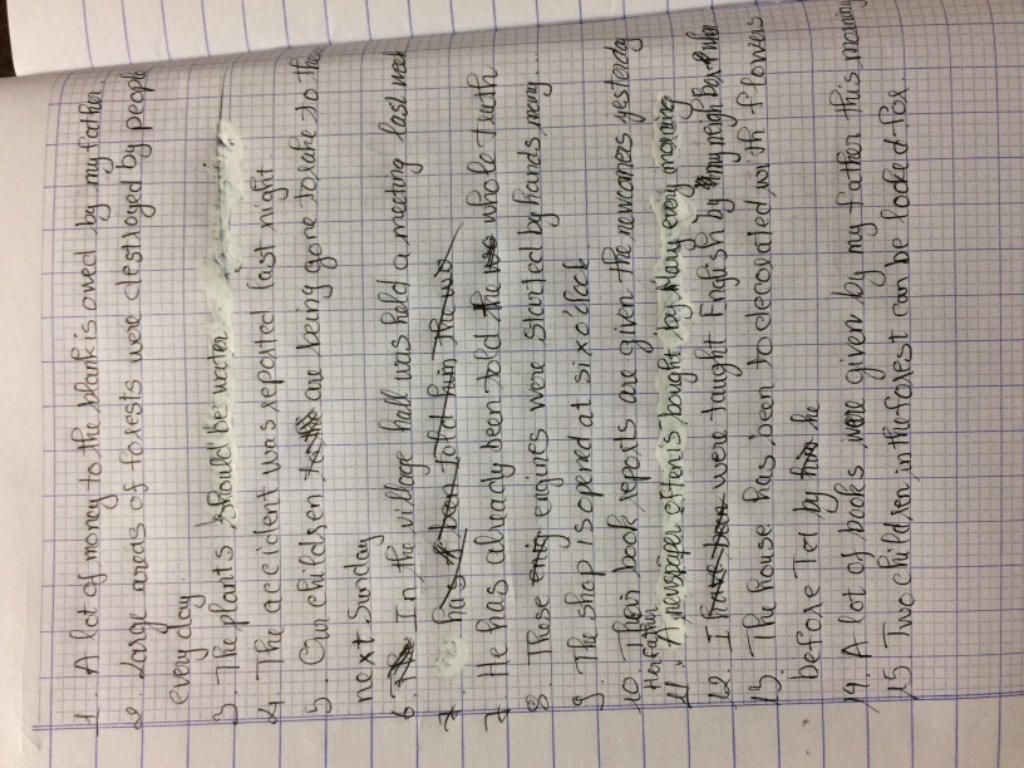 1. A lot of money to the blank is owed by my father
2. Large areads of forests were destroyed by people
every day
3. The plants should be water
4. The accident was reported last night
5. Our children are being gone to take to the
next Sunday
6. In the village hall was held a meeting last week
7 has been told him the
7. He has already been told the whole truth
8. These engines were started by hands many...
9. The shop is opened at six o'clock
10 Their book reports are given the newcomers yesterday
Her father
11. A newspaper is bought by Mary every morning
12. I have been were taught English by my neighbor
13. The house has been to decorated with flowers
before Tet by him he
14. A lot of books were given by my father this morning
15 Two children in the forest can be looked for.